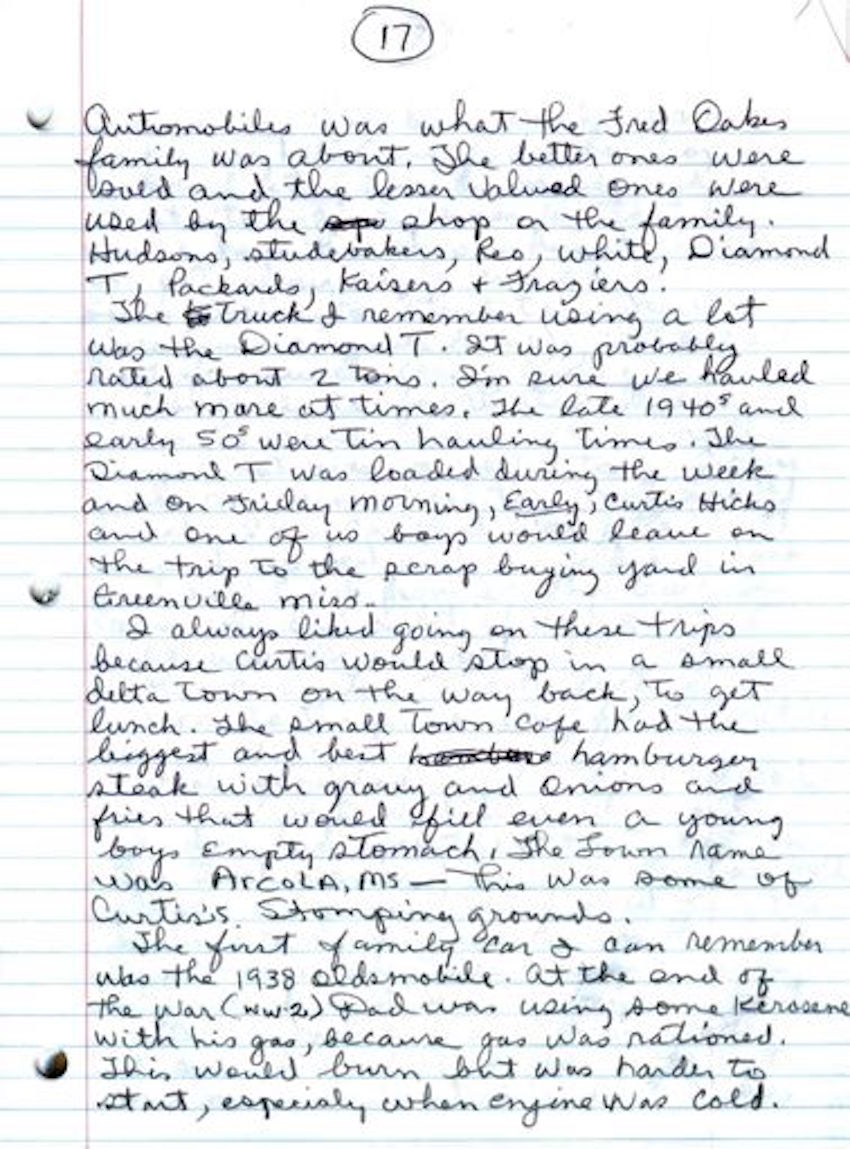 17
Automobiles was what the Fred Oakes
family was about. The better ones were
loved and the lesser valued ones were
used by the shop or the family.
Hudsons, studebakers, Reo, White, Diamond
T, Packards, Kaisers + Fraziers.
The Truck I remember using a lot
was the Diamond T. It was probably
rated about 2 tons. I'm sure we hauled
much more at times. The late 1940s and
early 50s were Tin hauling times. The
Diamond T was loaded during the week
and on Friday morning, Early, Curtis Hicks
and one of us boys would leave on
the trip to the scrap buying yard in
Greenville miss..
I always liked going on these trips
because Curtis would stop in a small
delta Town on the way back, to get
lunch. The small Town cafe had the
biggest and best hamburger
steak with gravy and onions and
fries that would fill even a young
boys empty stomach. The Town name
was ARCOLA, MS — this was some of
Curtis's Stomping grounds.
The first family car I can remember
was the 1938 oldsmobile. At the end of
the War (WW-2) Dad was using some Kerosene
with his gas, because gas was rationed.
This would burn but was harder to
start, especialy when engine was cold.